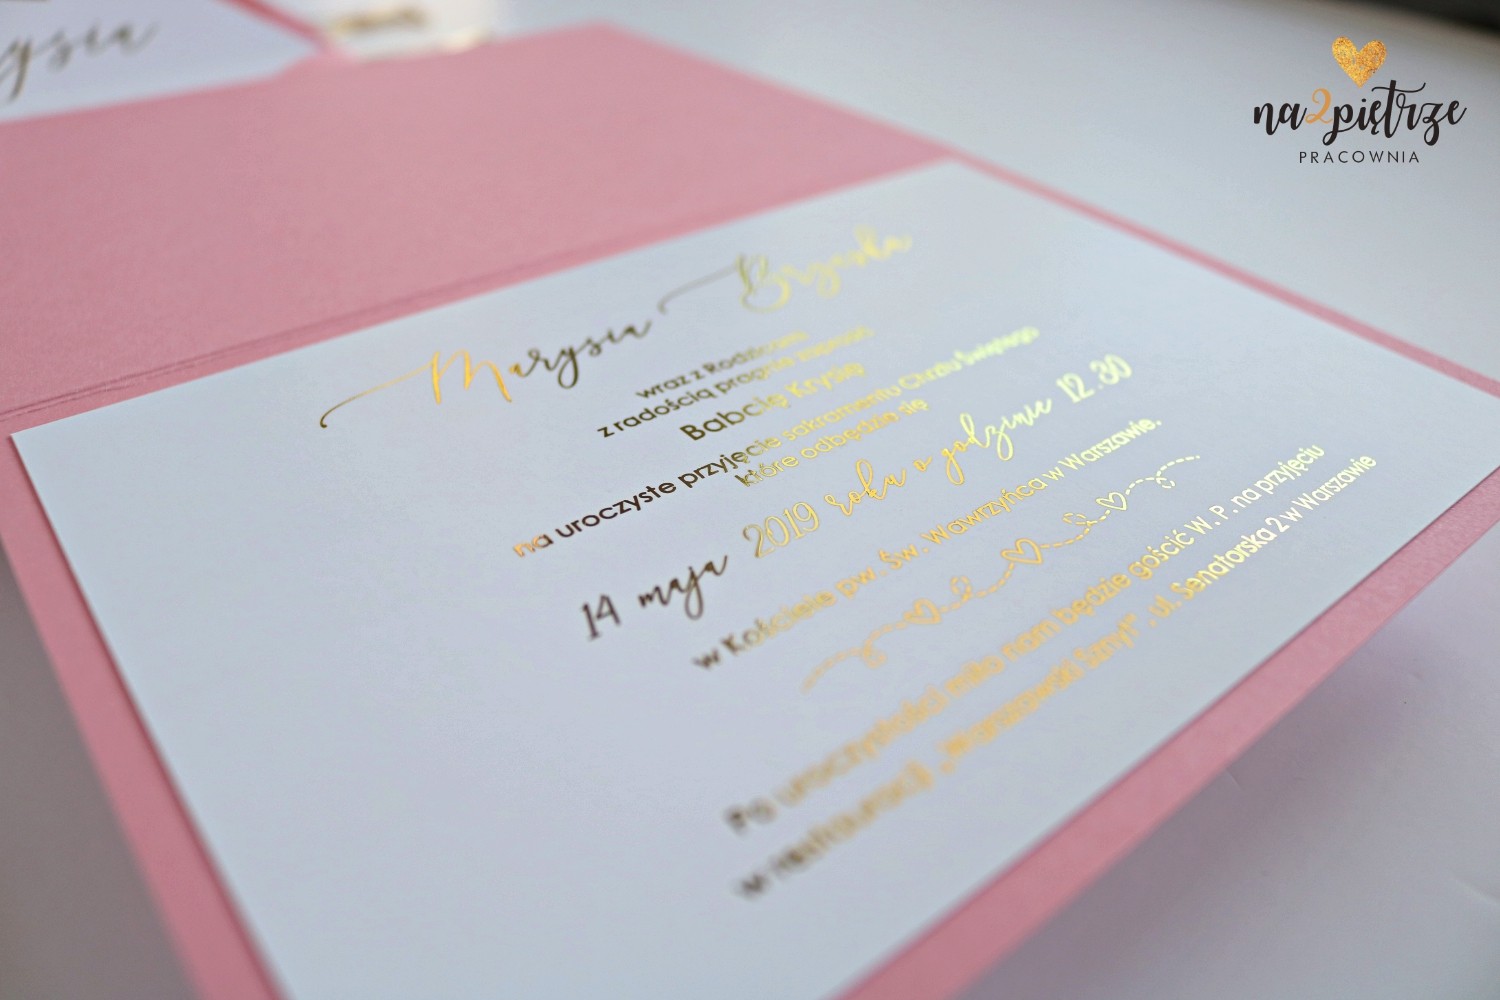 na2piętrze
PRACOWNIA
Marysia Brzeska
wraz z Rodzicami
z radością pragnie zaprosić
Babcię Krysię
na uroczyste przyjęcie sakramentu Chrztu Świętego
które odbędzie się
14 maja 2019 roku o godzinie 12.30
w Kościele pw. Św. Wawrzyńca w Warszawie.
Po uroczystości miło nam będzie gościć W. P. na przyjęciu
w restauracji „Warszawski Sznyt", ul. Senatorska 2 w Warszawie